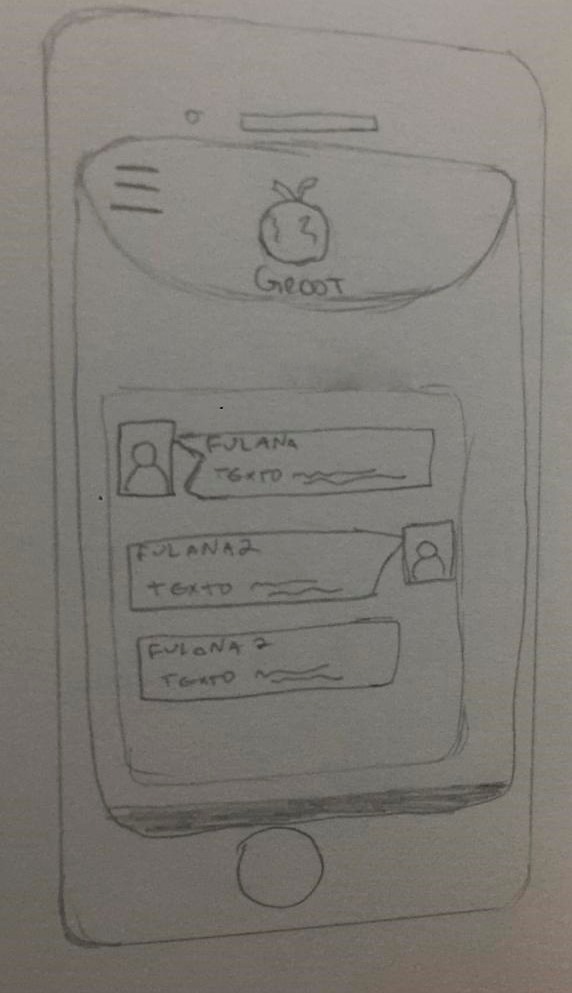 GROOT
FULANA
TEXTO
FULANA 2
TEXTO
FULANA 2
TEXTO